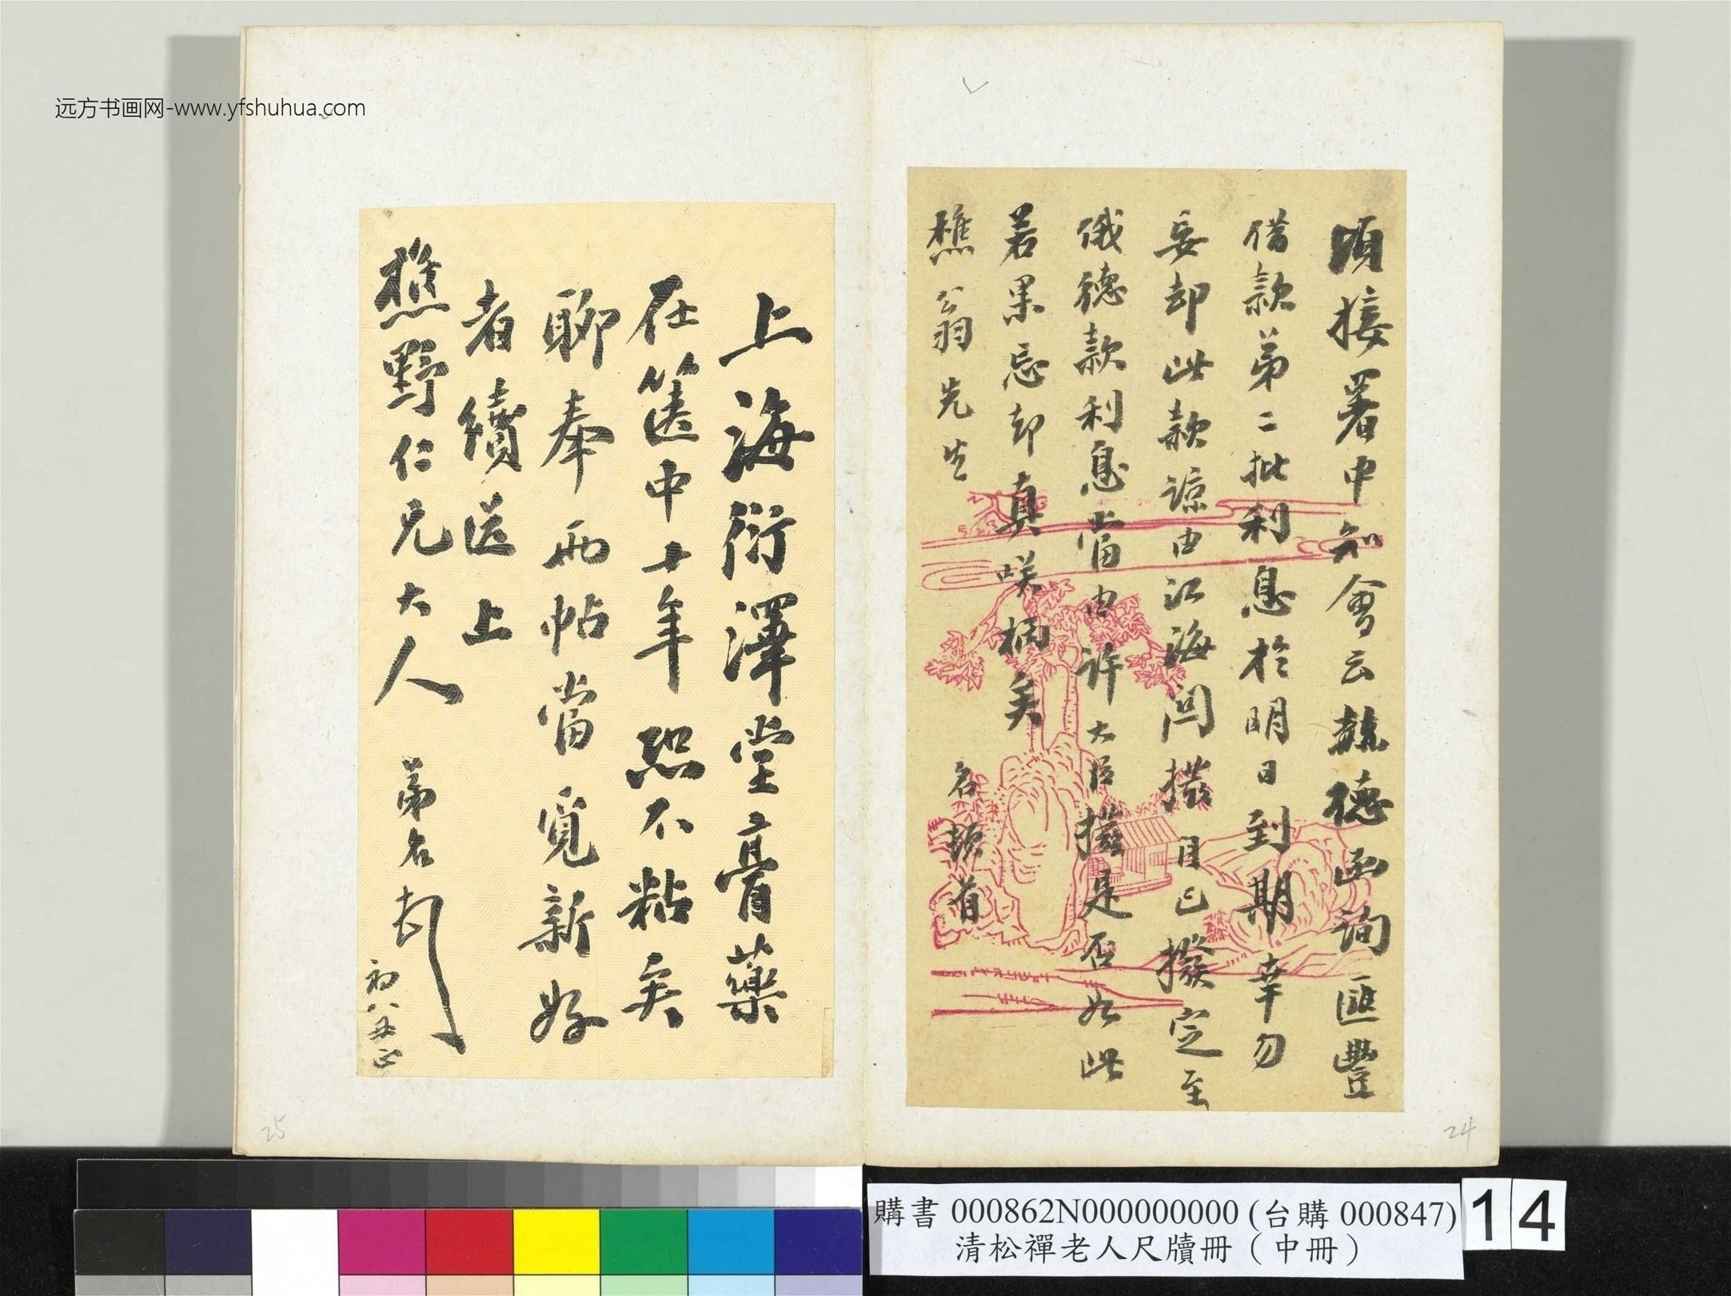 远方书画网-www.yfshuhua.com
頃接署中知會云赫德函詢匯豐
借款第二批利息於明日到期幸勿
妄却此款諒由江海関撥目已撥定至
俄德款利息當由許大臣撥是否如此
若果忘却真咲柄矣
樵翁先生
名頓首
24
上海衍澤堂膏藥
在篋中十年恐不粘矣
聊奉兩帖當覓新好
者續送上
樵野仁兄大人
弟名
初八
25
購書 000862N000000000 (台購 000847)
清松禪老人尺牘冊（中冊）
14